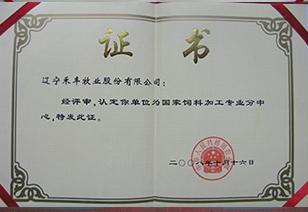 证书
辽宁禾丰牧业股份有限公司：
经评审，认定你单位为国家饲料加工专业分中
心，特发此证。
二〇〇八年十月十六日